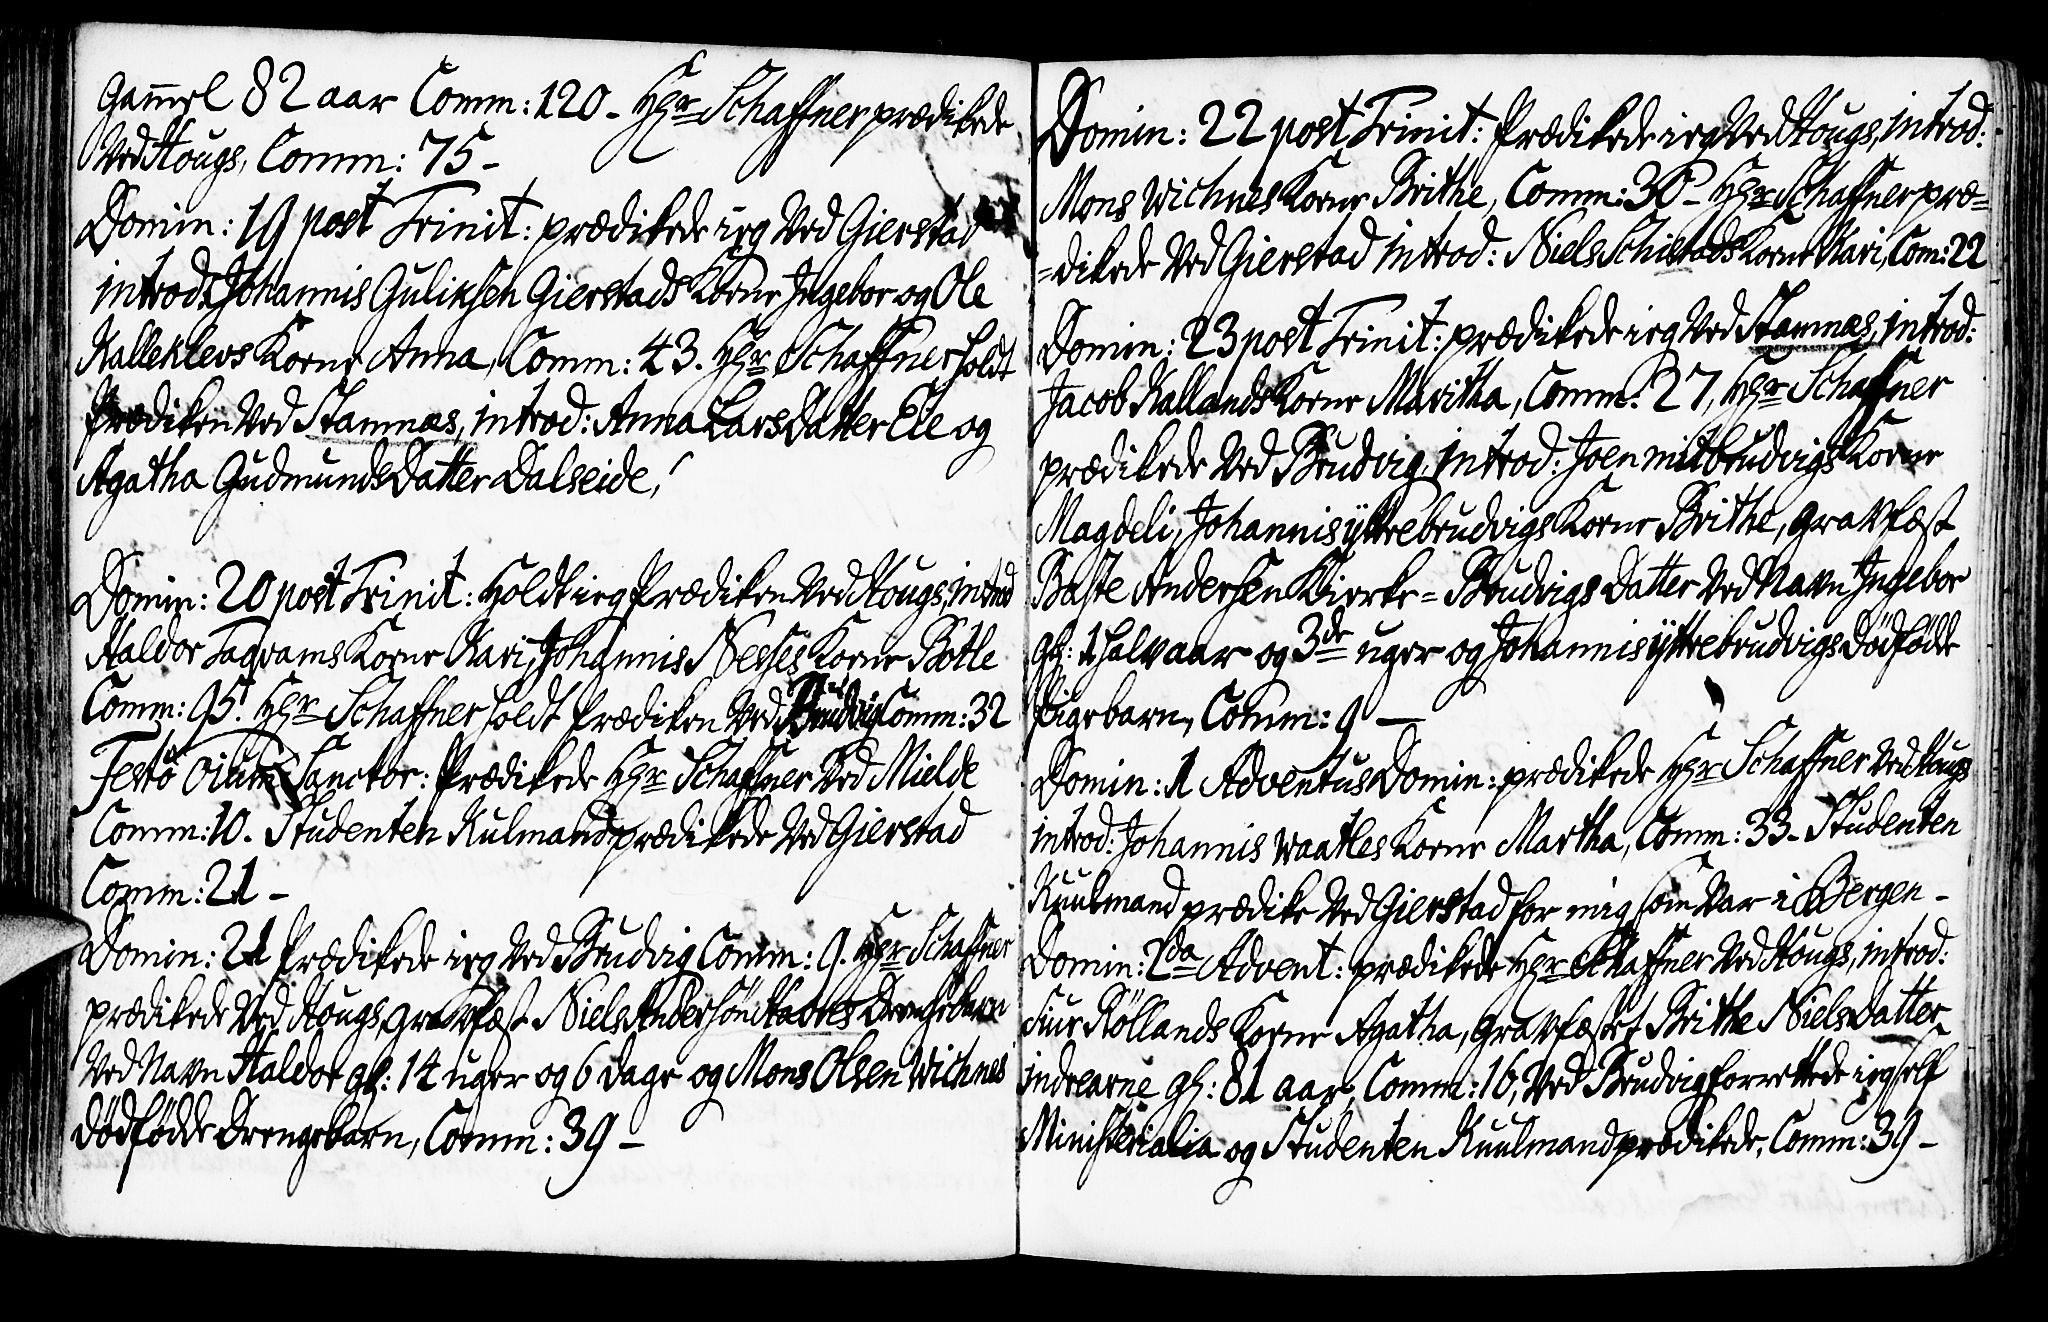 Gam̅el 82 aar Comm: 120 - Hr Schaffner prædikede
Ved Hougs, Comm: 75 -
Domin: 19 post Trinit: prædikede ieg Ved Gierstad
introd: Johannis Guliksen Gierstads Kone Ingebor og Ole
Kalleklevs Kone Anna, Comm: 43. Hr Schaffner holdt
Prædiken Ved Stamnæs, introd: Anna LarsDatter Eie og
Agatha GudmundsDatter Dalseide,
Domin: 20 post Trinit: Holdt ieg Prædiken Ved Hougs, introd
Haldor Fagvams Kone Kari, Johannis Neeses Kone Botle
Comm: 95. Hr Schaffner holdt Prædiken Ved Brudvig Comm: 32
Festo Oium Sanctor: Prædikede Hr Schaffner Ved Mielde
Comm: 10. Studenten Kulmand prædikede Ved Gierstad
Comm: 21 -
Domin: 21 Prædikede ieg Ved Brudvig Comm: 9. Hr Schaffner
prædikede Ved Hougs, gravfæst Niels Andersön Drengebarn
Ved Navn Haldor gl: 14 uger og 6 Dage og Mons Olsen Wichnes
dödfödde Drengebarn, Comm: 39 -
Domin: 22 post Trinit: Prædikede ieg Ved Hougs, introd:
Mons Wichnes Kone Brithe, Comm: 36 - Hr Schaffner præ=
=dikede Ved Gierstad introd: Niels Schistads Kone Kari, Com: 22
Domin: 23 post Trinit: prædikede ieg Ved Stamnæs, introd:
Jacob Kallands Kone Maritha, Comm: 27, Hr Schaffner
prædikede Ved Brudvig, introd: Joen mitbrudvigs Kone
Magdeli, Johannis ÿttrebrudvigs Kone Brithe, gravfæst
Baste Andersen Kierke= Brudvigs Datter Ved Navn Ingebor
gl: 1 halv aar og 3de uger og Johannis ÿttrebrudvigs Dödfödde
Pigebarn, Comm: 9 -
Domin: 1 Adventus Domin: prædikede Hr Schaffner Ved Hougs
introd: Johannis Waatles Kone Martha, Comm: 33 - Studenten
Kuulmand prædike Ved Gierstad for mig som Var i Bergen -
Domin: 2da Advent: prædikede Hr Schaffner Ved Hougs, introd:
Siur Röllands Kone Agatha, gravfæstet Brithe NielsDatter
indrearne gl: 81 aar, Comm: 16, Ved Brudvig forrettede ieg self
Ministerialia og Studenten Kuulmand prædikede, Comm: 39 -